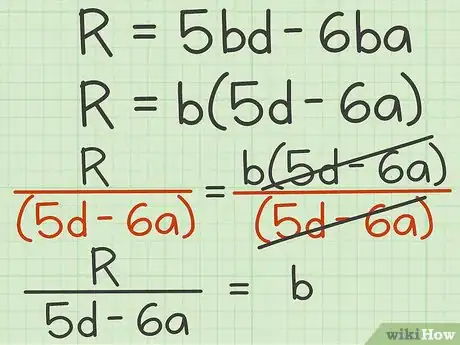 R = 5bd - 6ba
R = b(5d - 6a)
R/(5d - 6a) = b(5d - 6a)/(5d - 6a)
R/5d - 6a = b
wikiHow